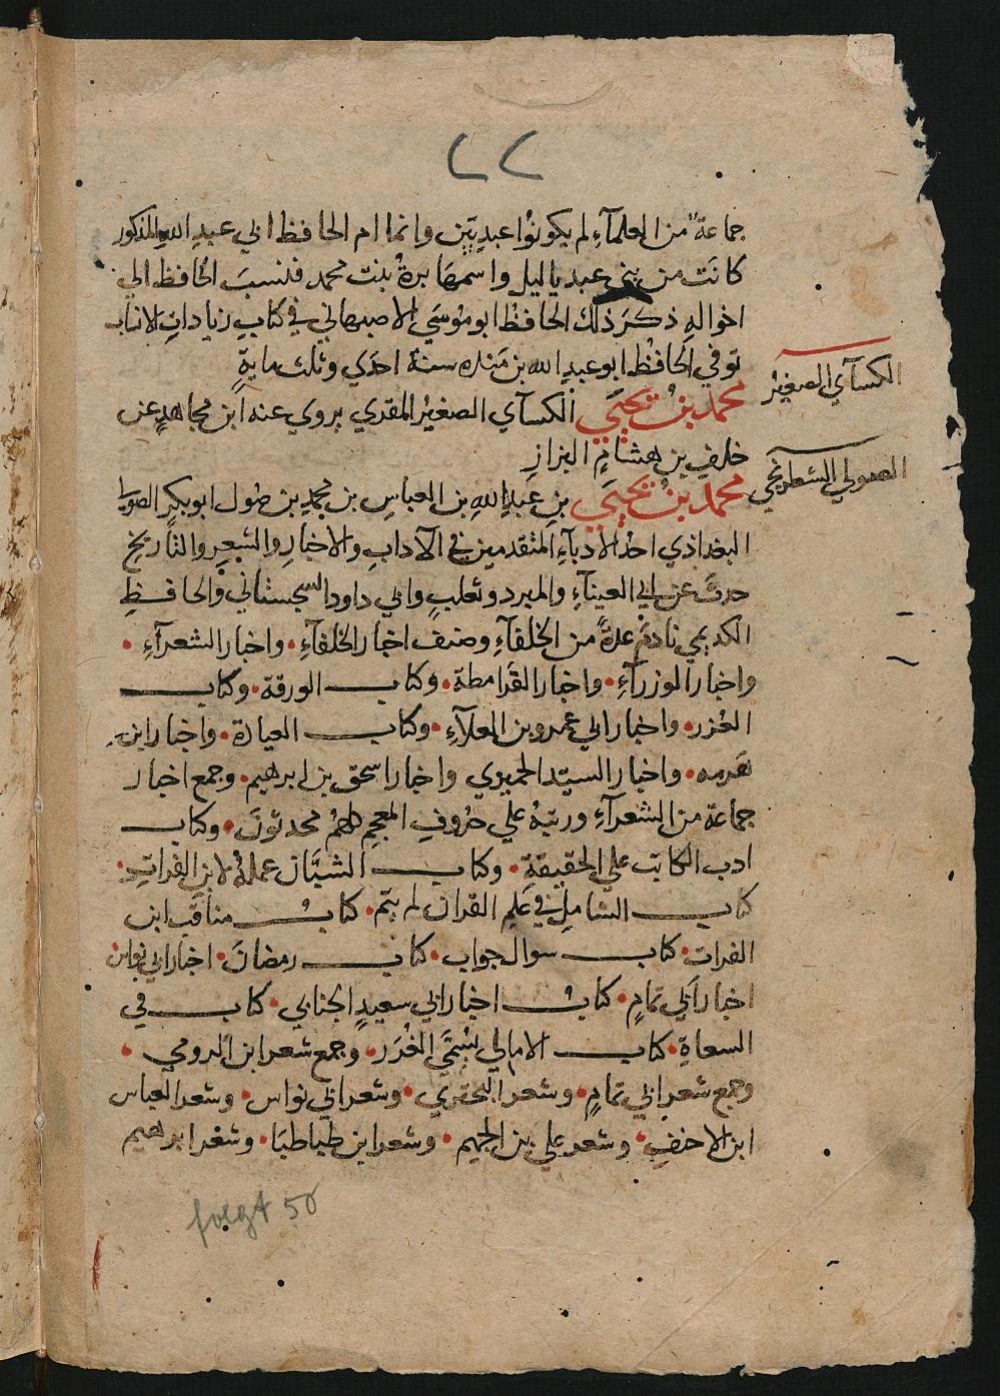 ٢٢
جماعة من العلمآء لم يكونوا عبديين وانما ام الحافظ ابي عبد الله المذكور
كانت من بني عبد ياليل واسمها برة بنت محمد فنسب الحافظ الي
اخواله ذكر ذلك الحافظ ابو موسي الاصبهاني في كتاب زيادات الانساب
توفي الحافظ ابو عبد الله بن منده سنة احدي وثلث ماية
الكسآي الصغير
محمد بن يحيي الكسآي الصغير المقري يروي عنه ابن مجاهد عن
خلف بن هشام البزاز
الصولي الشطرنجي
محمد بن يحيي بن عبد الله بن العباس بن محمد بن صول ابو بكر الصولي
البغداذي احد الادبآء المتقدمين في الآداب والاخبار والشعر والتاريخ
حدث عن ابي العينآء والمبرد وثعلب وابي داود السجستاني والحافظ
الكديمي نادم عدة من الخلفآء وصنف اخبار الخلفآء • واخبار الشعرآء •
واخبار الوزرآء • واخبار القرامطة • وكتاب الورقة • وكتاب
الغرر • واخبار ابي عمرو بن العلآء • وكتاب العبادة • واخبار ابن
هرمه • واخبار السيد الحميري واخبار اسحق بن ابرهيم • وجمع اخبار
جماعة من الشعرآء ورتبه علي حروف المعجم كلهم محدثون • وكتاب
ادب الكاتب علي الحقيقة • وكتاب الشبان عمله لابن الفرات •
كتاب الشامل في علم القران لم يتم • كتاب مناقب ابن
الفرات • كتاب سوال جواب • كتاب رمضان • اخبار ابي نواس
اخبار ابي تمام • كتاب اخبار ابي سعيد الجنابي • كتاب في
السعاة • كتاب الامالي يسمي الغرر • وجمع شعر ابن الرومي •
وجمع شعر ابي تمام • وشعر البحتري • وشعر ابي نواس • وشعر العباس
ابن الاحنف • وشعر علي بن الجهم • وشعر ابن طباطبا • وشعر ابرهيم
folgt 50